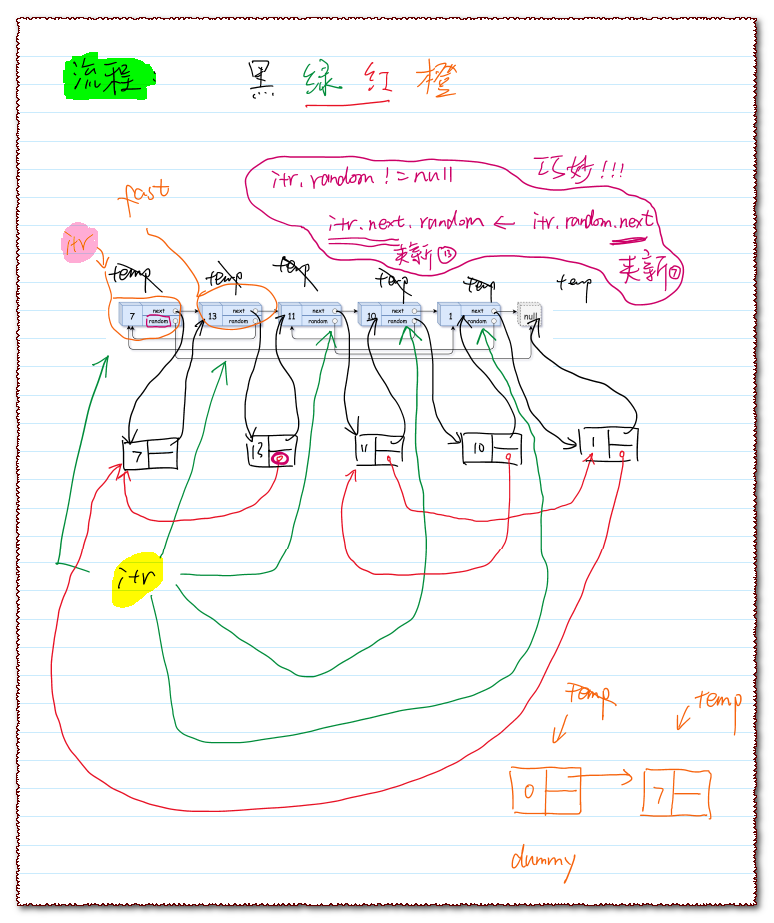 流程:
黑 绿 红 橙
itr.random != null
巧妙!!!
itr.next.random ← itr.random.next
来新⑬
来新⑦
fast
itr
temp temp temp temp temp temp
7 next random
13 next random
11 next random
10 next random
1 next random
null
7
13
11
10
1
itr
temp temp
0 7
dummy